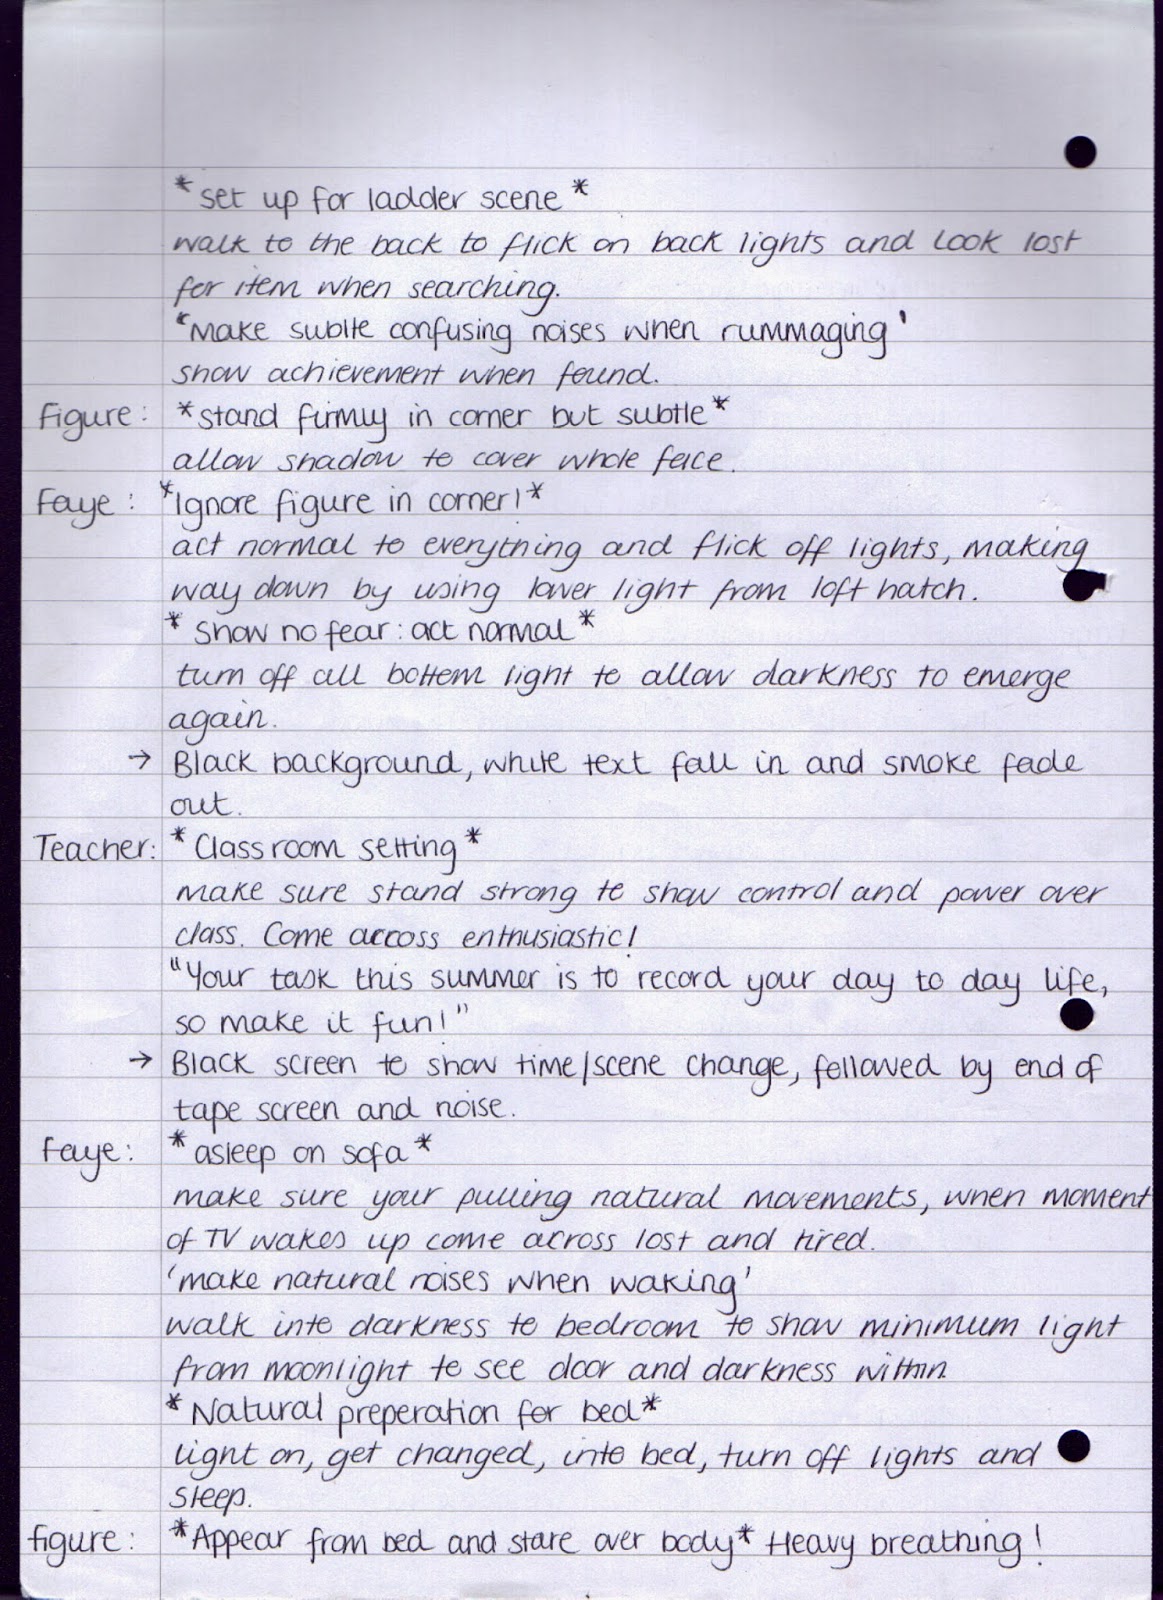 *set up for ladder scene*
walk to the back to flick on back lights and look lost
for item when searching.
'Make sublte confusing noises when rummaging'
show achievement when found.
Figure: *stand firmly in corner but subtle*
allow shadow to cover whole face.
Faye: *Ignore figure in corner!*
act normal to everything and flick off lights, making
way down by using lower light from loft hatch.
*Show no fear: act normal*
turn off all bottem light to allow darkness to emerge
again.
→ Black background, white text fall in and smoke fade
out.
Teacher: *Classroom setting*
make sure stand strong to show control and power over
class. Come accross enthusiastic!
"Your task this summer is to record your day to day life,
so make it fun!"
→ Black screen to show time/scene change, followed by end of
tape screen and noise.
Faye: *asleep on sofa*
make sure your pulling natural movements, when moment
of TV wakes up come across lost and tired.
'make natural noises when waking'
walk into darkness to bedroom to show minimum light
from moonlight to see door and darkness within.
*Natural preperation for bed*
light on, get changed, into bed, turn off lights and
sleep.
figure: *Appear from bed and stare over body* Heavy breathing!